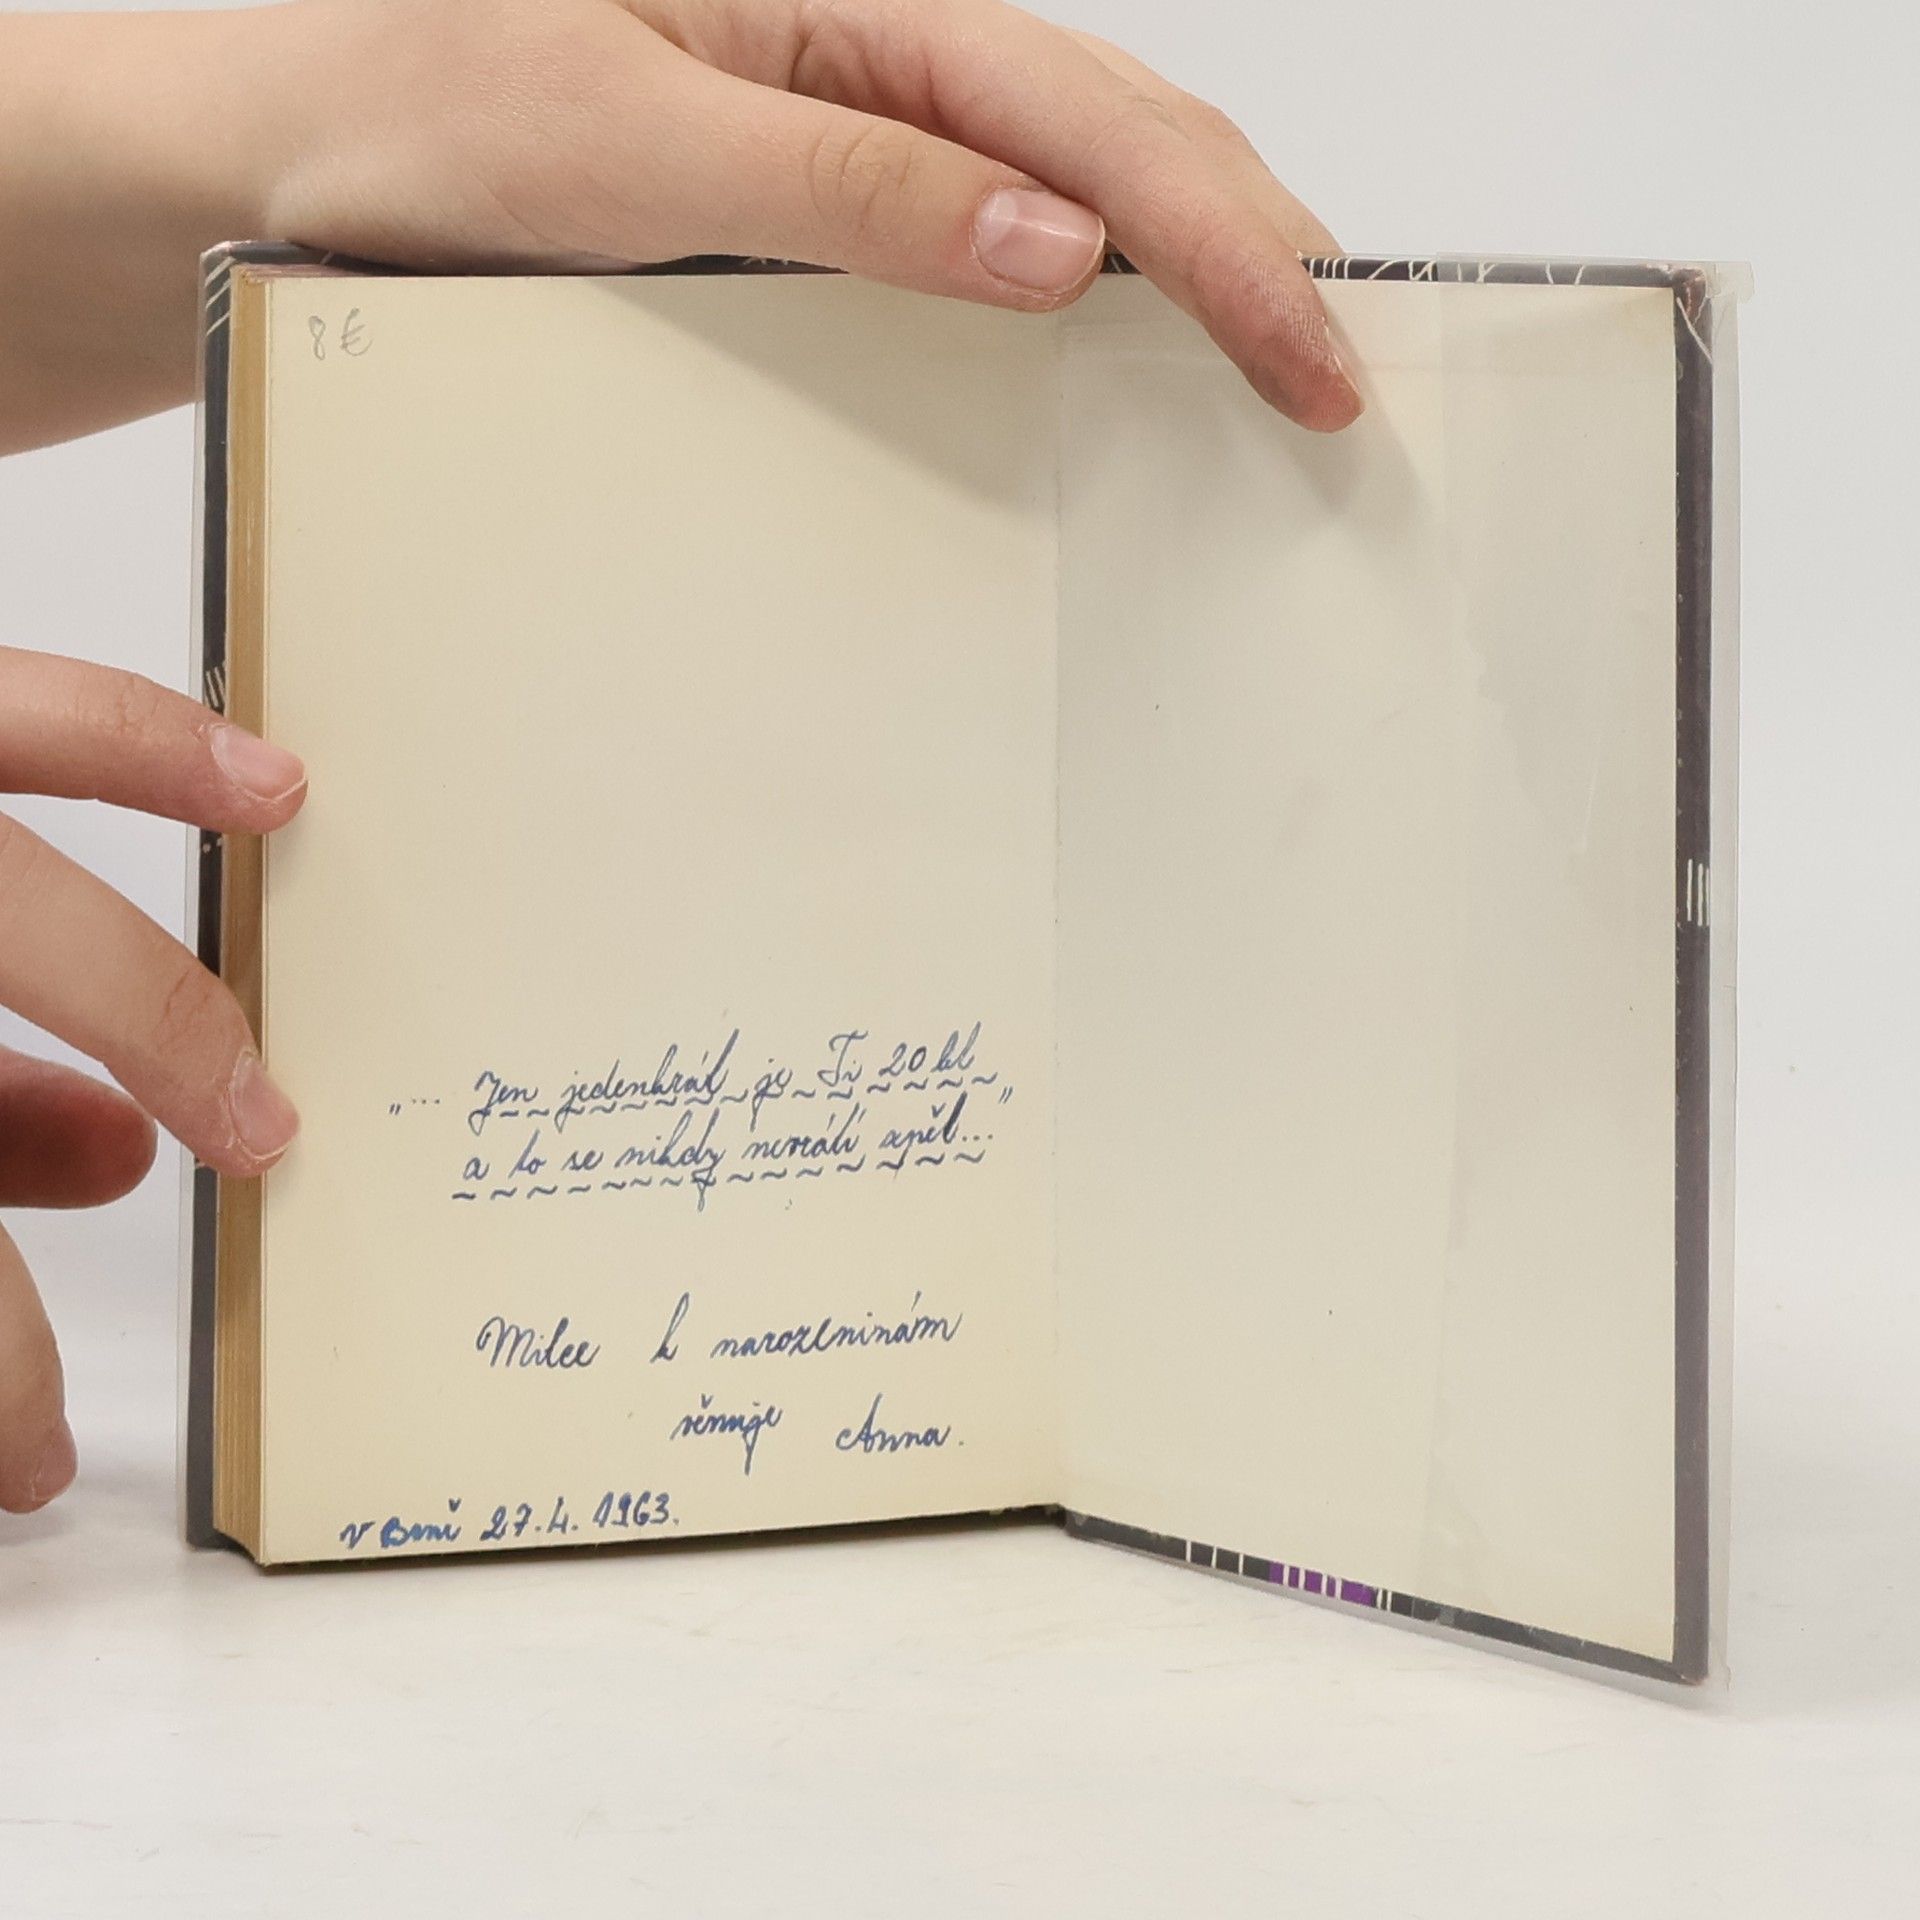 8 €
„... Jen jedenkrát je Ti 20 let
a to se nikdy nevrátí zpět... "
Milce k narozeninám
věnuje Anna.
v Brně 27.4. 1963.